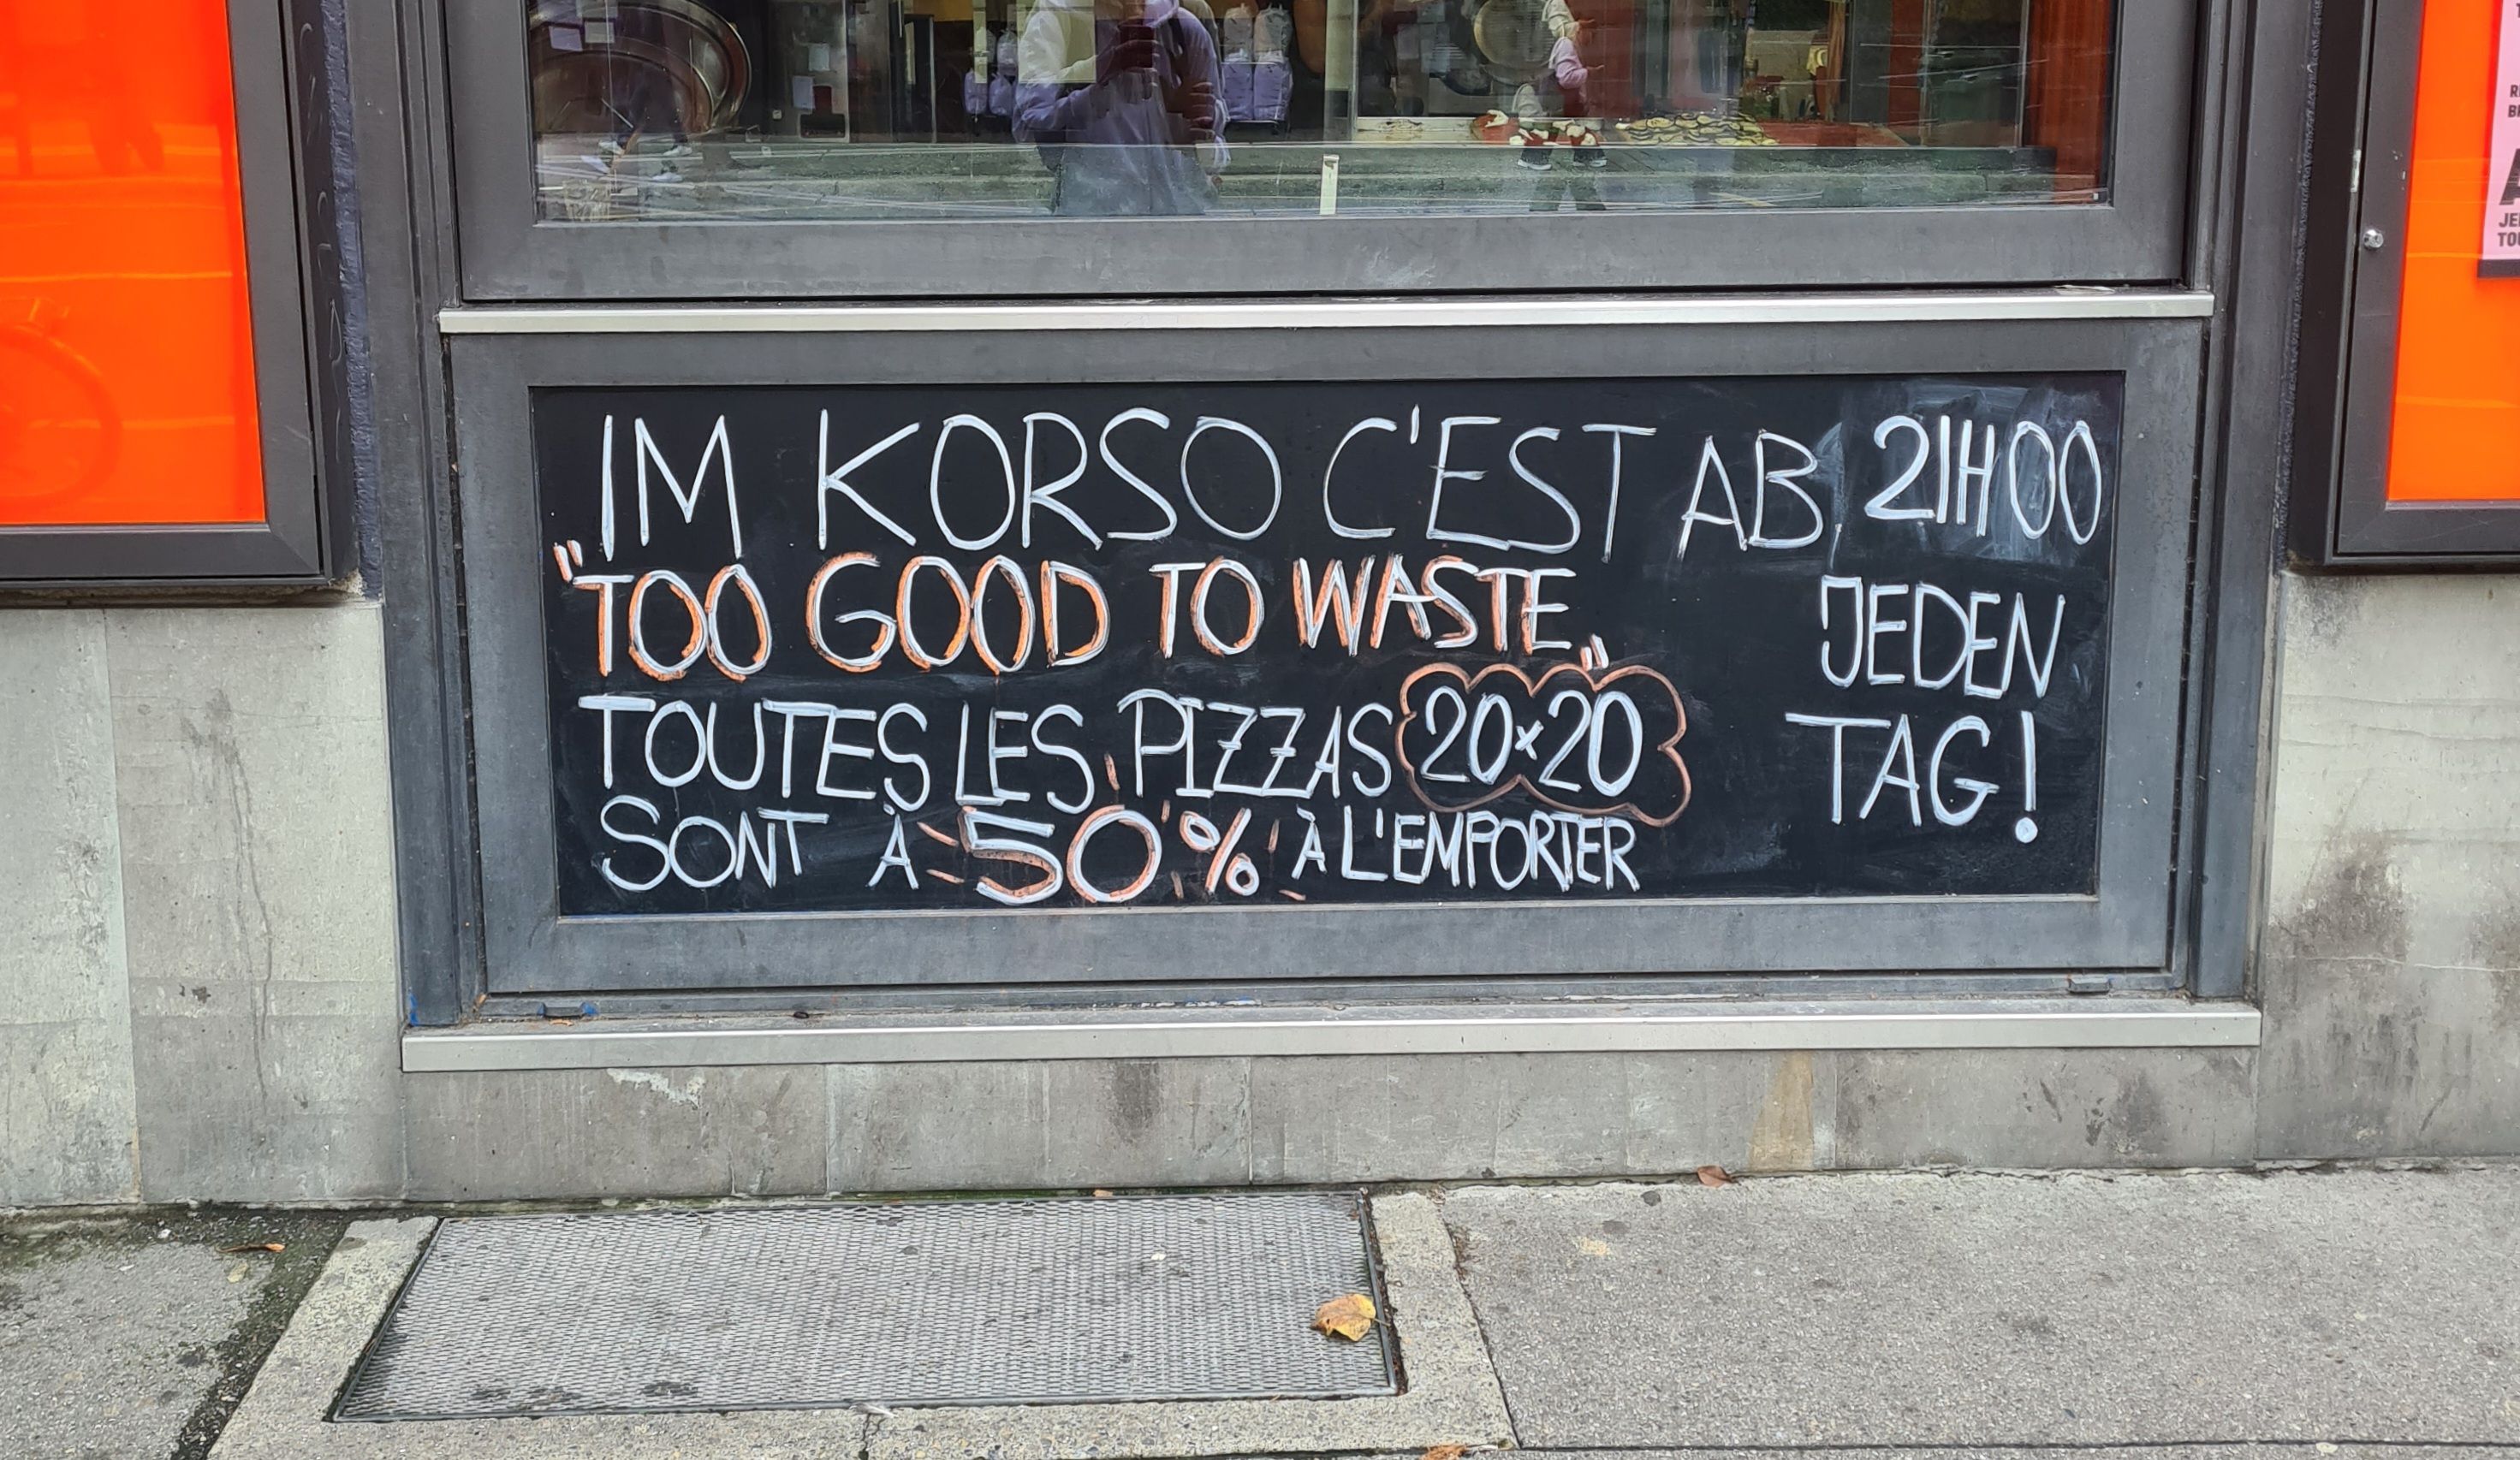 IM KORSO C'EST AB 21H00
"TOO GOOD TO WASTE"
JEDEN
TAG!
TOUTES LES PIZZAS 20×20
SONT À 50% À L'EMPORTER
JE
TO